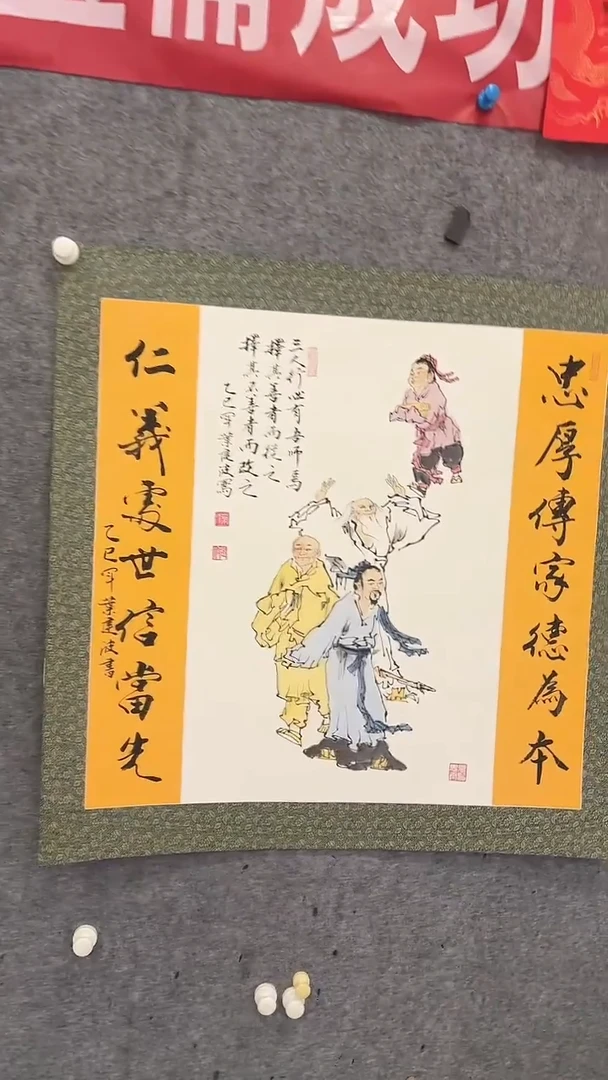 成功
忠厚傳家德為本
三人行必有吾師焉
擇其善者而從之
擇其不善者而改之
乙巳年葉建波寫
仁義處世信當先
乙巳年葉建波書